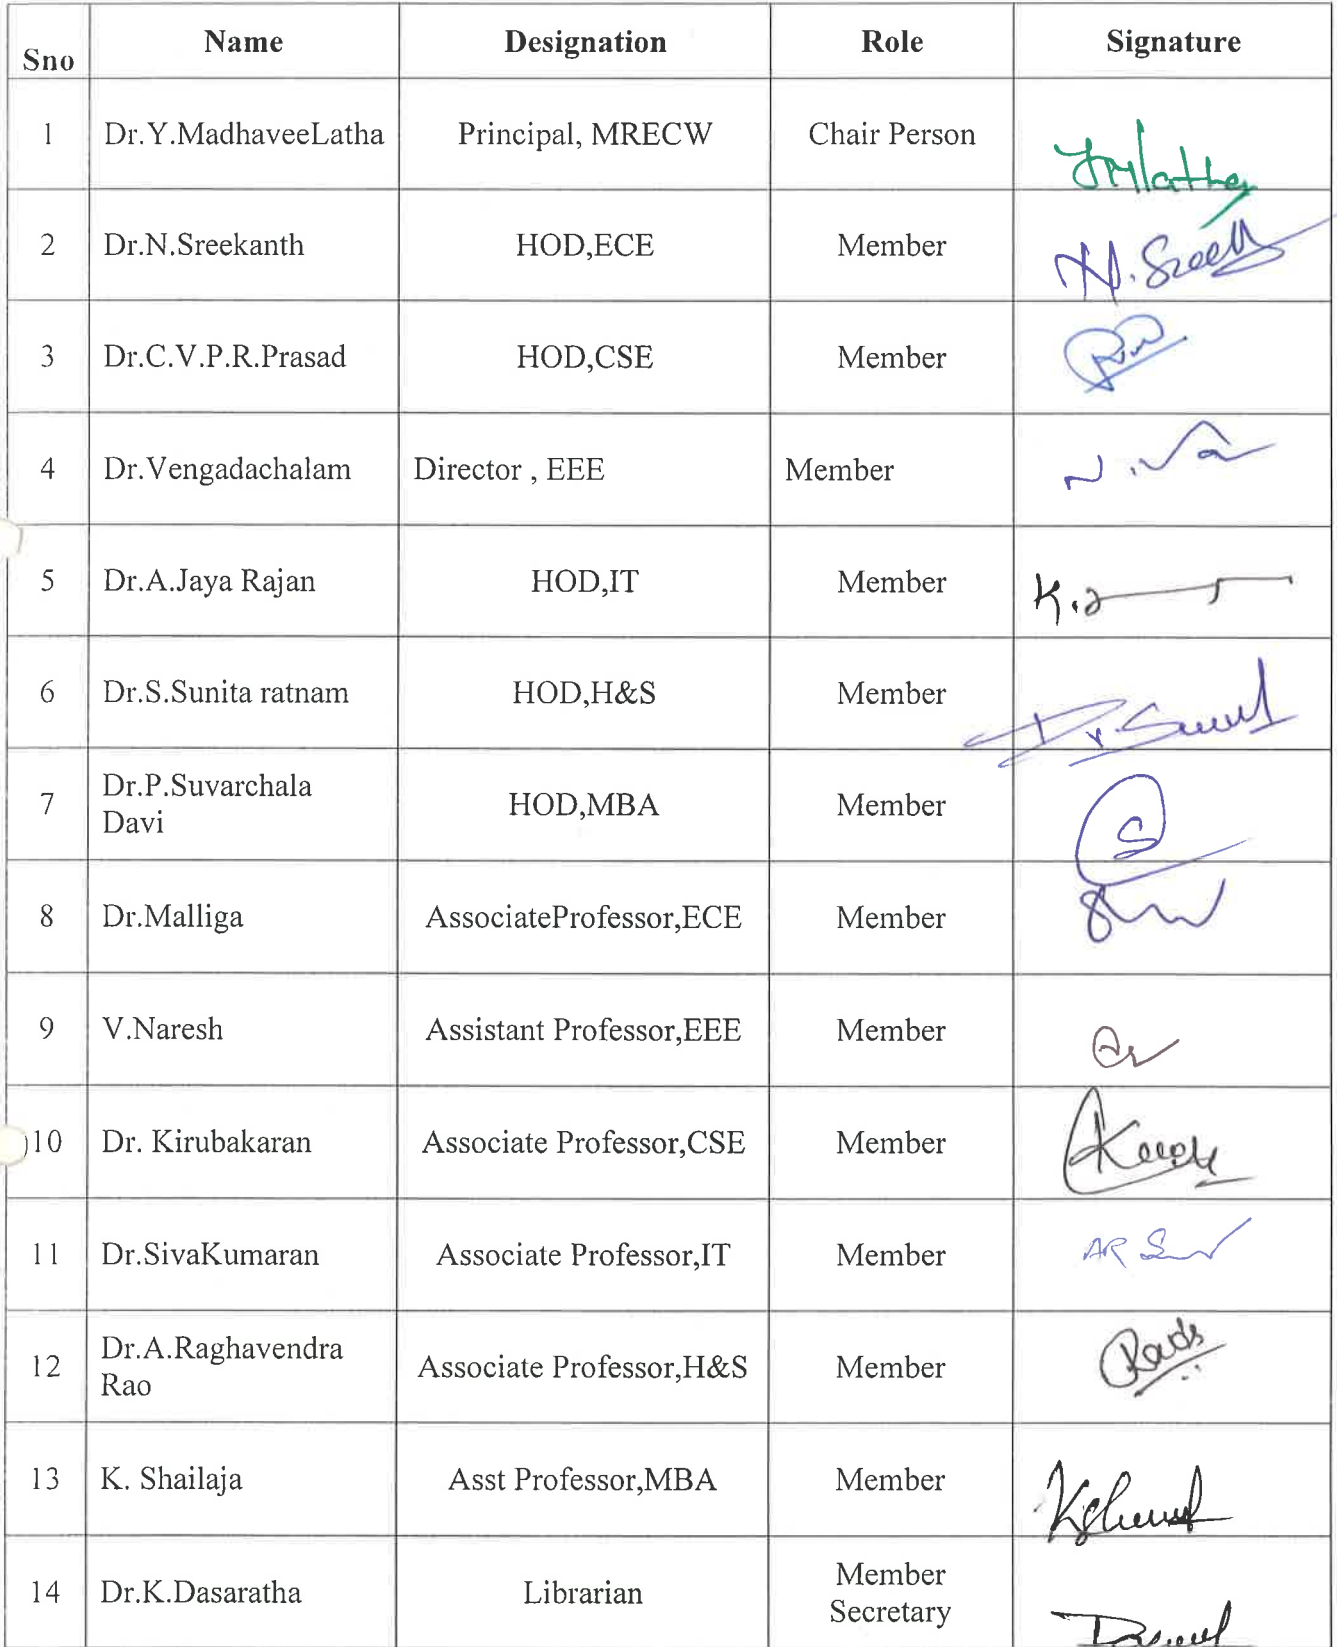 Sno Name Designation Role Signature
1 Dr.Y.MadhaveeLatha Principal, MRECW Chair Person
2 Dr.N.Sreekanth HOD,ECE Member N.Sree
3 Dr.C.V.P.R.Prasad HOD,CSE Member
4 Dr.Vengadachalam Director , EEE Member
5 Dr.A.Jaya Rajan HOD,IT Member
6 Dr.S.Sunita ratnam HOD,H&S Member
7 Dr.P.Suvarchala
Davi HOD,MBA Member
8 Dr.Malliga AssociateProfessor,ECE Member
9 V.Naresh Assistant Professor,EEE Member
10 Dr. Kirubakaran Associate Professor,CSE Member
11 Dr.SivaKumaran Associate Professor,IT Member
12 Dr.A.Raghavendra
Rao Associate Professor,H&S Member
13 K. Shailaja Asst Professor,MBA Member
14 Dr.K.Dasaratha Librarian Member
Secretary